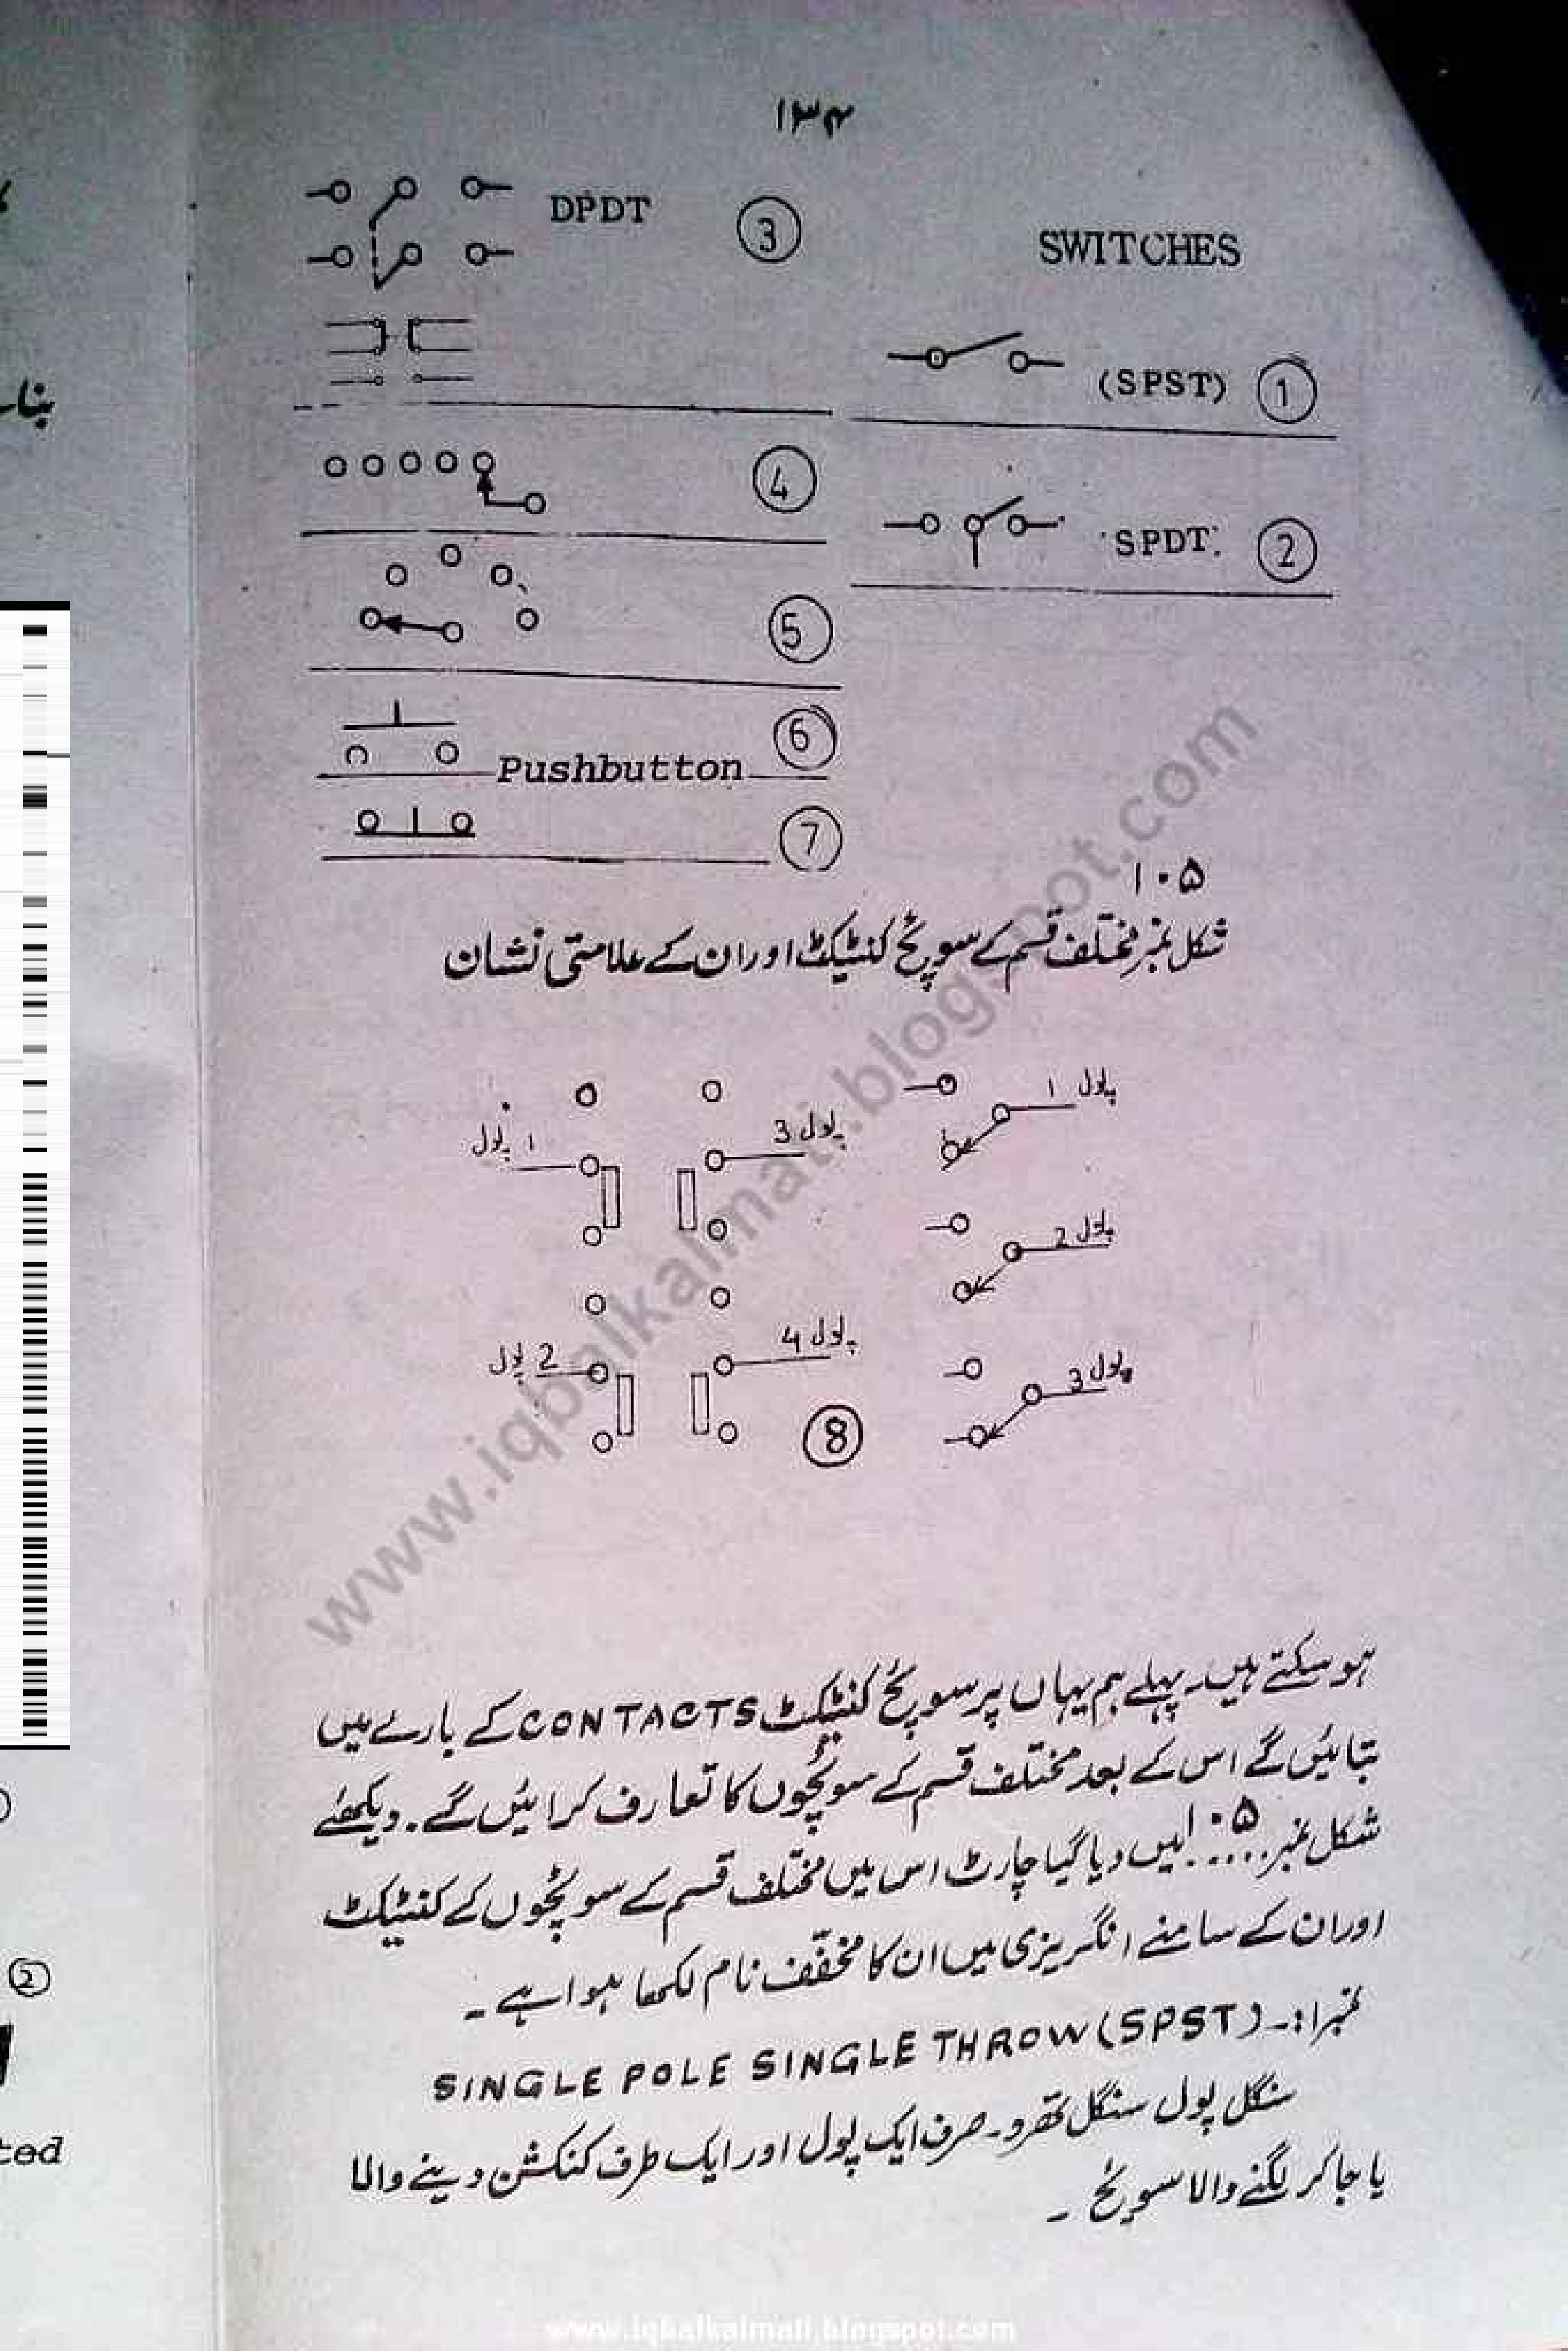 ۱۳۴
SWITCHES
(SPST) 1
SPDT 2
DPDT 3
4
5
Pushbutton 6
7
۱۰۵
شکل نمبر مختلف قسم کے سوئچ کنٹیکٹ اور ان کے علامتی نشان
پول 1
پول 2
پول 3
پول 1
پول 3
پول 2
پول 4
8
ہو سکتے ہیں۔ پہلے ہم یہاں پر سوئچ کنٹیکٹ CONTACTS کے بارے میں
بتائیں گے اس کے بعد مختلف قسم کے سوئچوں کا تعارف کرائیں گے۔ دیکھئے
شکل نمبر ۱۰۵ میں دیا گیا چارٹ اس میں مختلف قسم کے سوئچوں کے کنٹیکٹ
اور ان کے سامنے انگریزی میں ان کا مخفّف نام لکھا ہوا ہے۔
نمبر۱:۔ SINGLE POLE SINGLE THROW (SPST)
سنگل پول سنگل تھرو۔ صرف ایک پول اور ایک طرف کنکشن دینے والا
یا جا کر لگنے والا سوئچ۔
www.iqbalkalmati.blogspot.com
www.iqbalkalmati.blogspot.com
بنا
2
ted